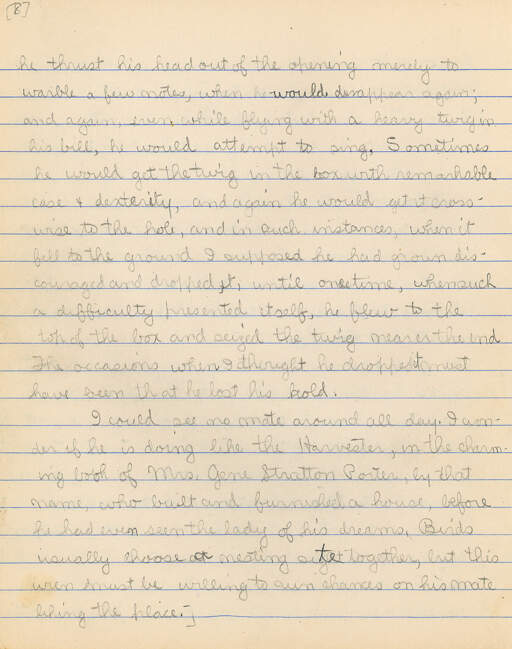 [8]
he thrust his head out of the opening merely to
warble a few notes, when he would disappear again;
and again, even while flying with a heavy twig in
his bill, he would attempt to sing. Sometimes
he would get the twig in the box with remarkable
ease & dexterity, and again he would get it cross-
wise to the hole, and in such instances, when it
fell to the ground I supposed he had grown dis-
couraged and dropped it, until one time, when such
a difficulty presented itself, he flew to the
top of the box and seized the twig nearer the end
The occasions when I thought he dropped it must
have been that he lost his hold.
I could see no mate around all day. I won-
der if he is doing like the Harvester, in the charm-
ing book of Mrs. Gene Stratton Porter, by that
name, who built and furnished a house, before
he had even seen the lady of his dreams. Birds
usually choose a nesting site together, but this
wren must be willing to run chances on his mate
liking the place.]